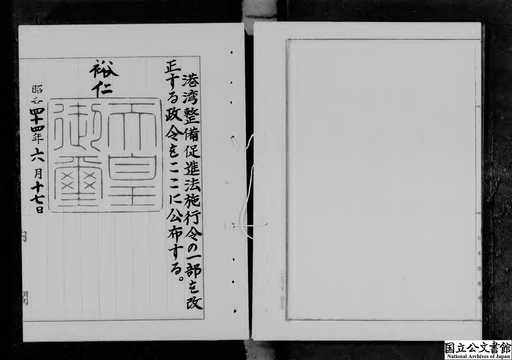 港湾整備促進法施行令の一部を改
正する政令をここに公布する。
裕仁
天皇御璽
昭和四十四年六月十七日
内閣
国立公文書館
National Archives of Japan